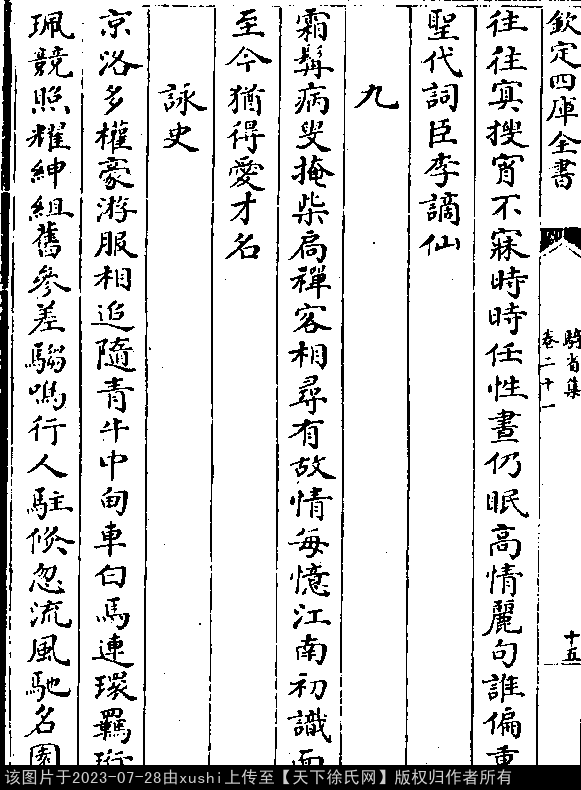 欽定四庫全書
騎省集
卷二十一
十五
往往冥搜宵不寐時時任性晝仍眠高情麗句誰偏重
聖代詞臣李謫仙
九
霜髯病叟掩柴扃禪客相尋有故情每憶江南初識面
至今猶得愛才名
詠史
京洛多權豪游服相追隨青牛中甸車白馬連環羈珩
珮競照耀紳組舊參差騶鳴行人駐倐忽流風馳名園
该图片于2023-07-28由xushi上传至【天下徐氏网】版权归作者所有